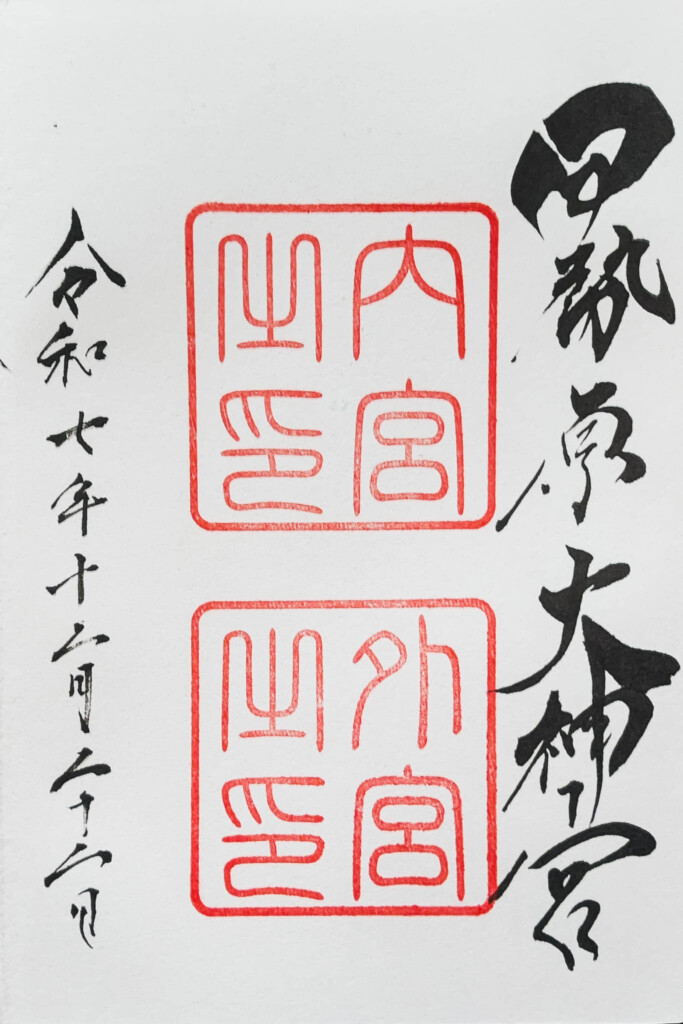 伊勢原大神宮
内宮
之印
外宮
之印
令和七年十二月二十二日